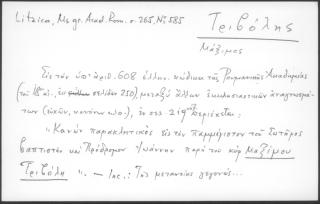 Litzica, Ms gr. Acad. Rom. σ. 265, Nº 585
Τριβόλης
Μάξιμος
Εἰς τὸν ὑπ' ἀριθ. 608 ἑλλην. κώδικα τῆς Ρουμανικῆς Ἀκαδημίας
(τοῦ 18 αἰ., ἐκ σελίδων 250), μεταξὺ ἄλλων ἐκκλησιαστικῶν ἀναγνωσμά-
των (εὐχῶν, κανόνων κ.λ.), ἐν σελ. 219 περιέχεται:
"Κανὼν παρακλητικὸς εἰς τὸν παμμέγιστον τοῦ Σωτῆρος
βαπτιστὴν καὶ Πρόδρομον Ἰωάννην παρὰ τοῦ κὺρ Μαξίμου
Τριβόλη". — Inc.: Τῆς μετανοίας γεγονώς...